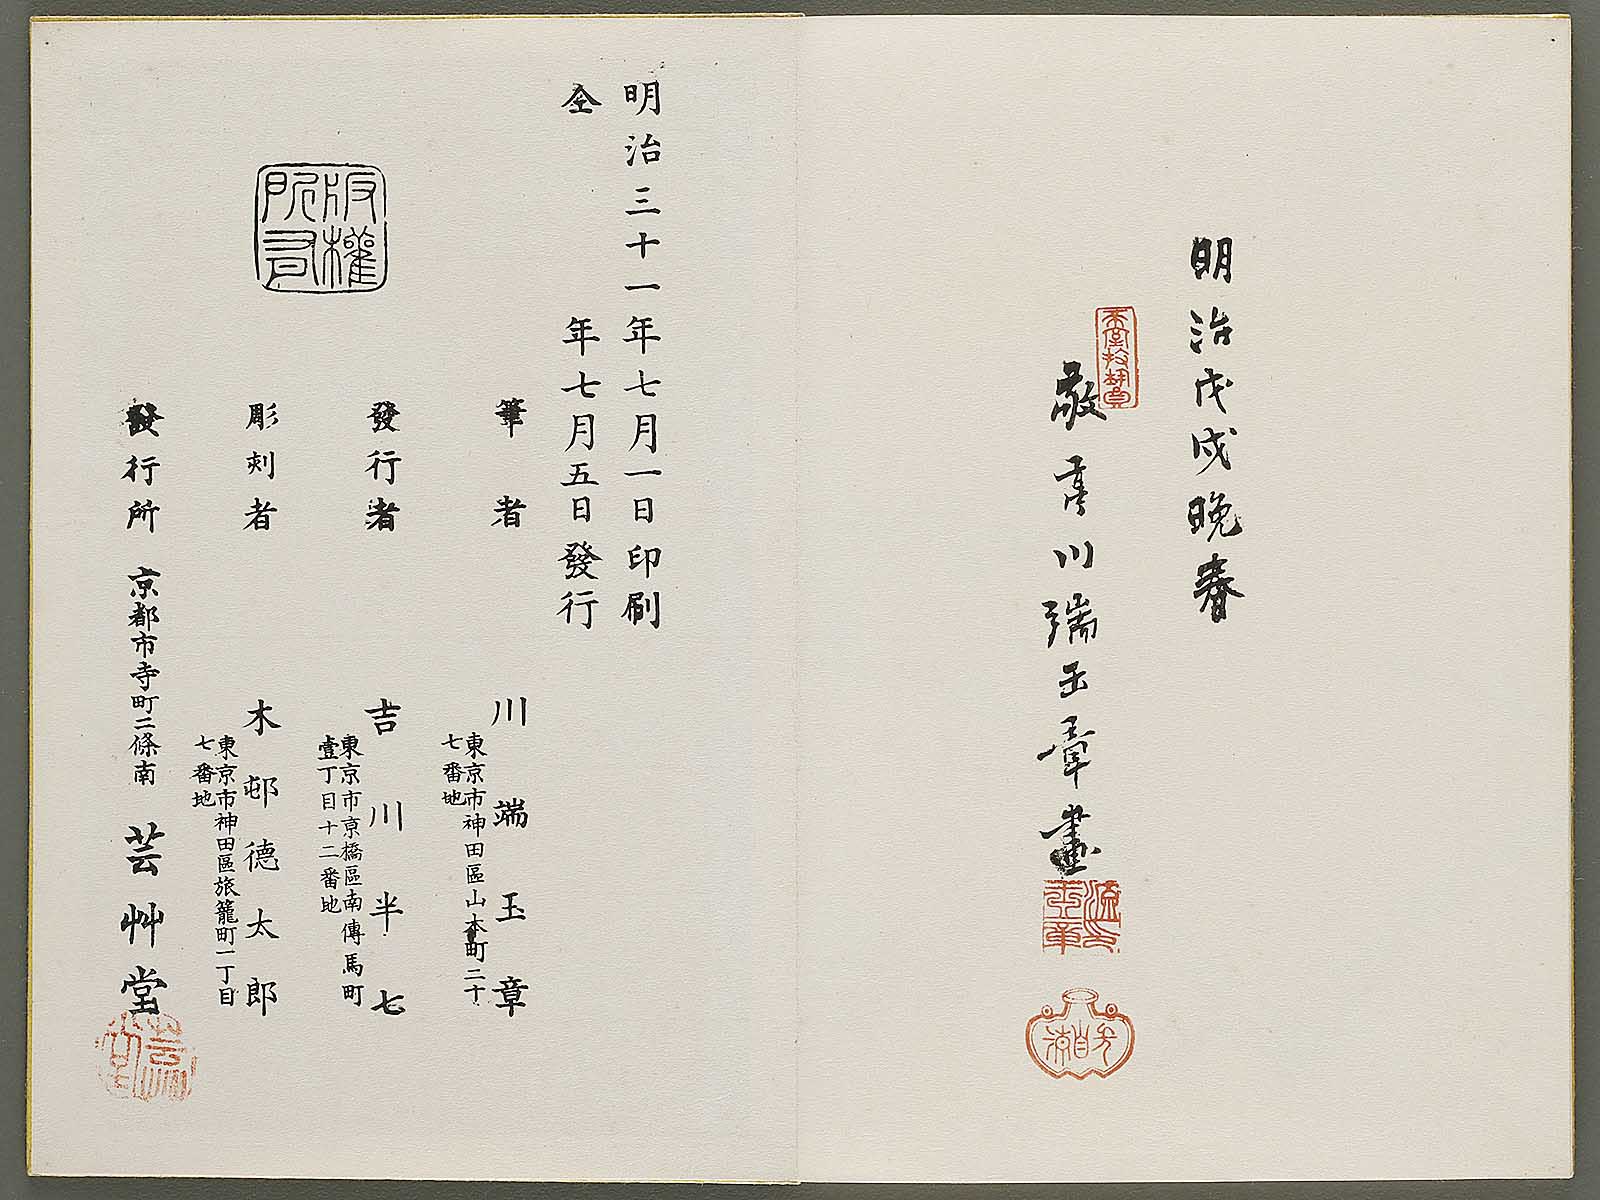 明治戊戌晩春
敬亭川端玉章畫
明治三十一年七月一日印刷
仝年七月五日發行
版權所有
筆者
川端玉章
東京市神田區山本町二十
七番地
發行者
吉川半七
東京市京橋區南傳馬町
壹丁目十二番地
彫刻者
木邨德太郎
東京市神田區旅籠町一丁目
七番地
發行所
京都市寺町二條南
芸艸堂